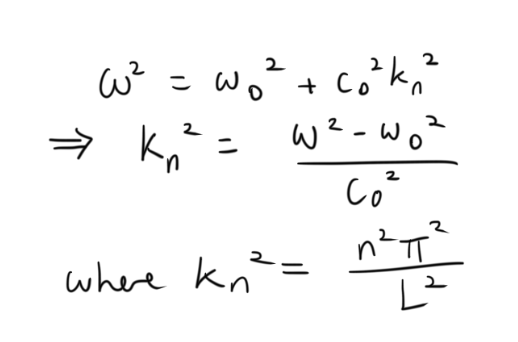 ω² = ω₀² + c₀²kₙ²
⇒ kₙ² = (ω² - ω₀²) / c₀²
where kₙ² = n²π² / L²